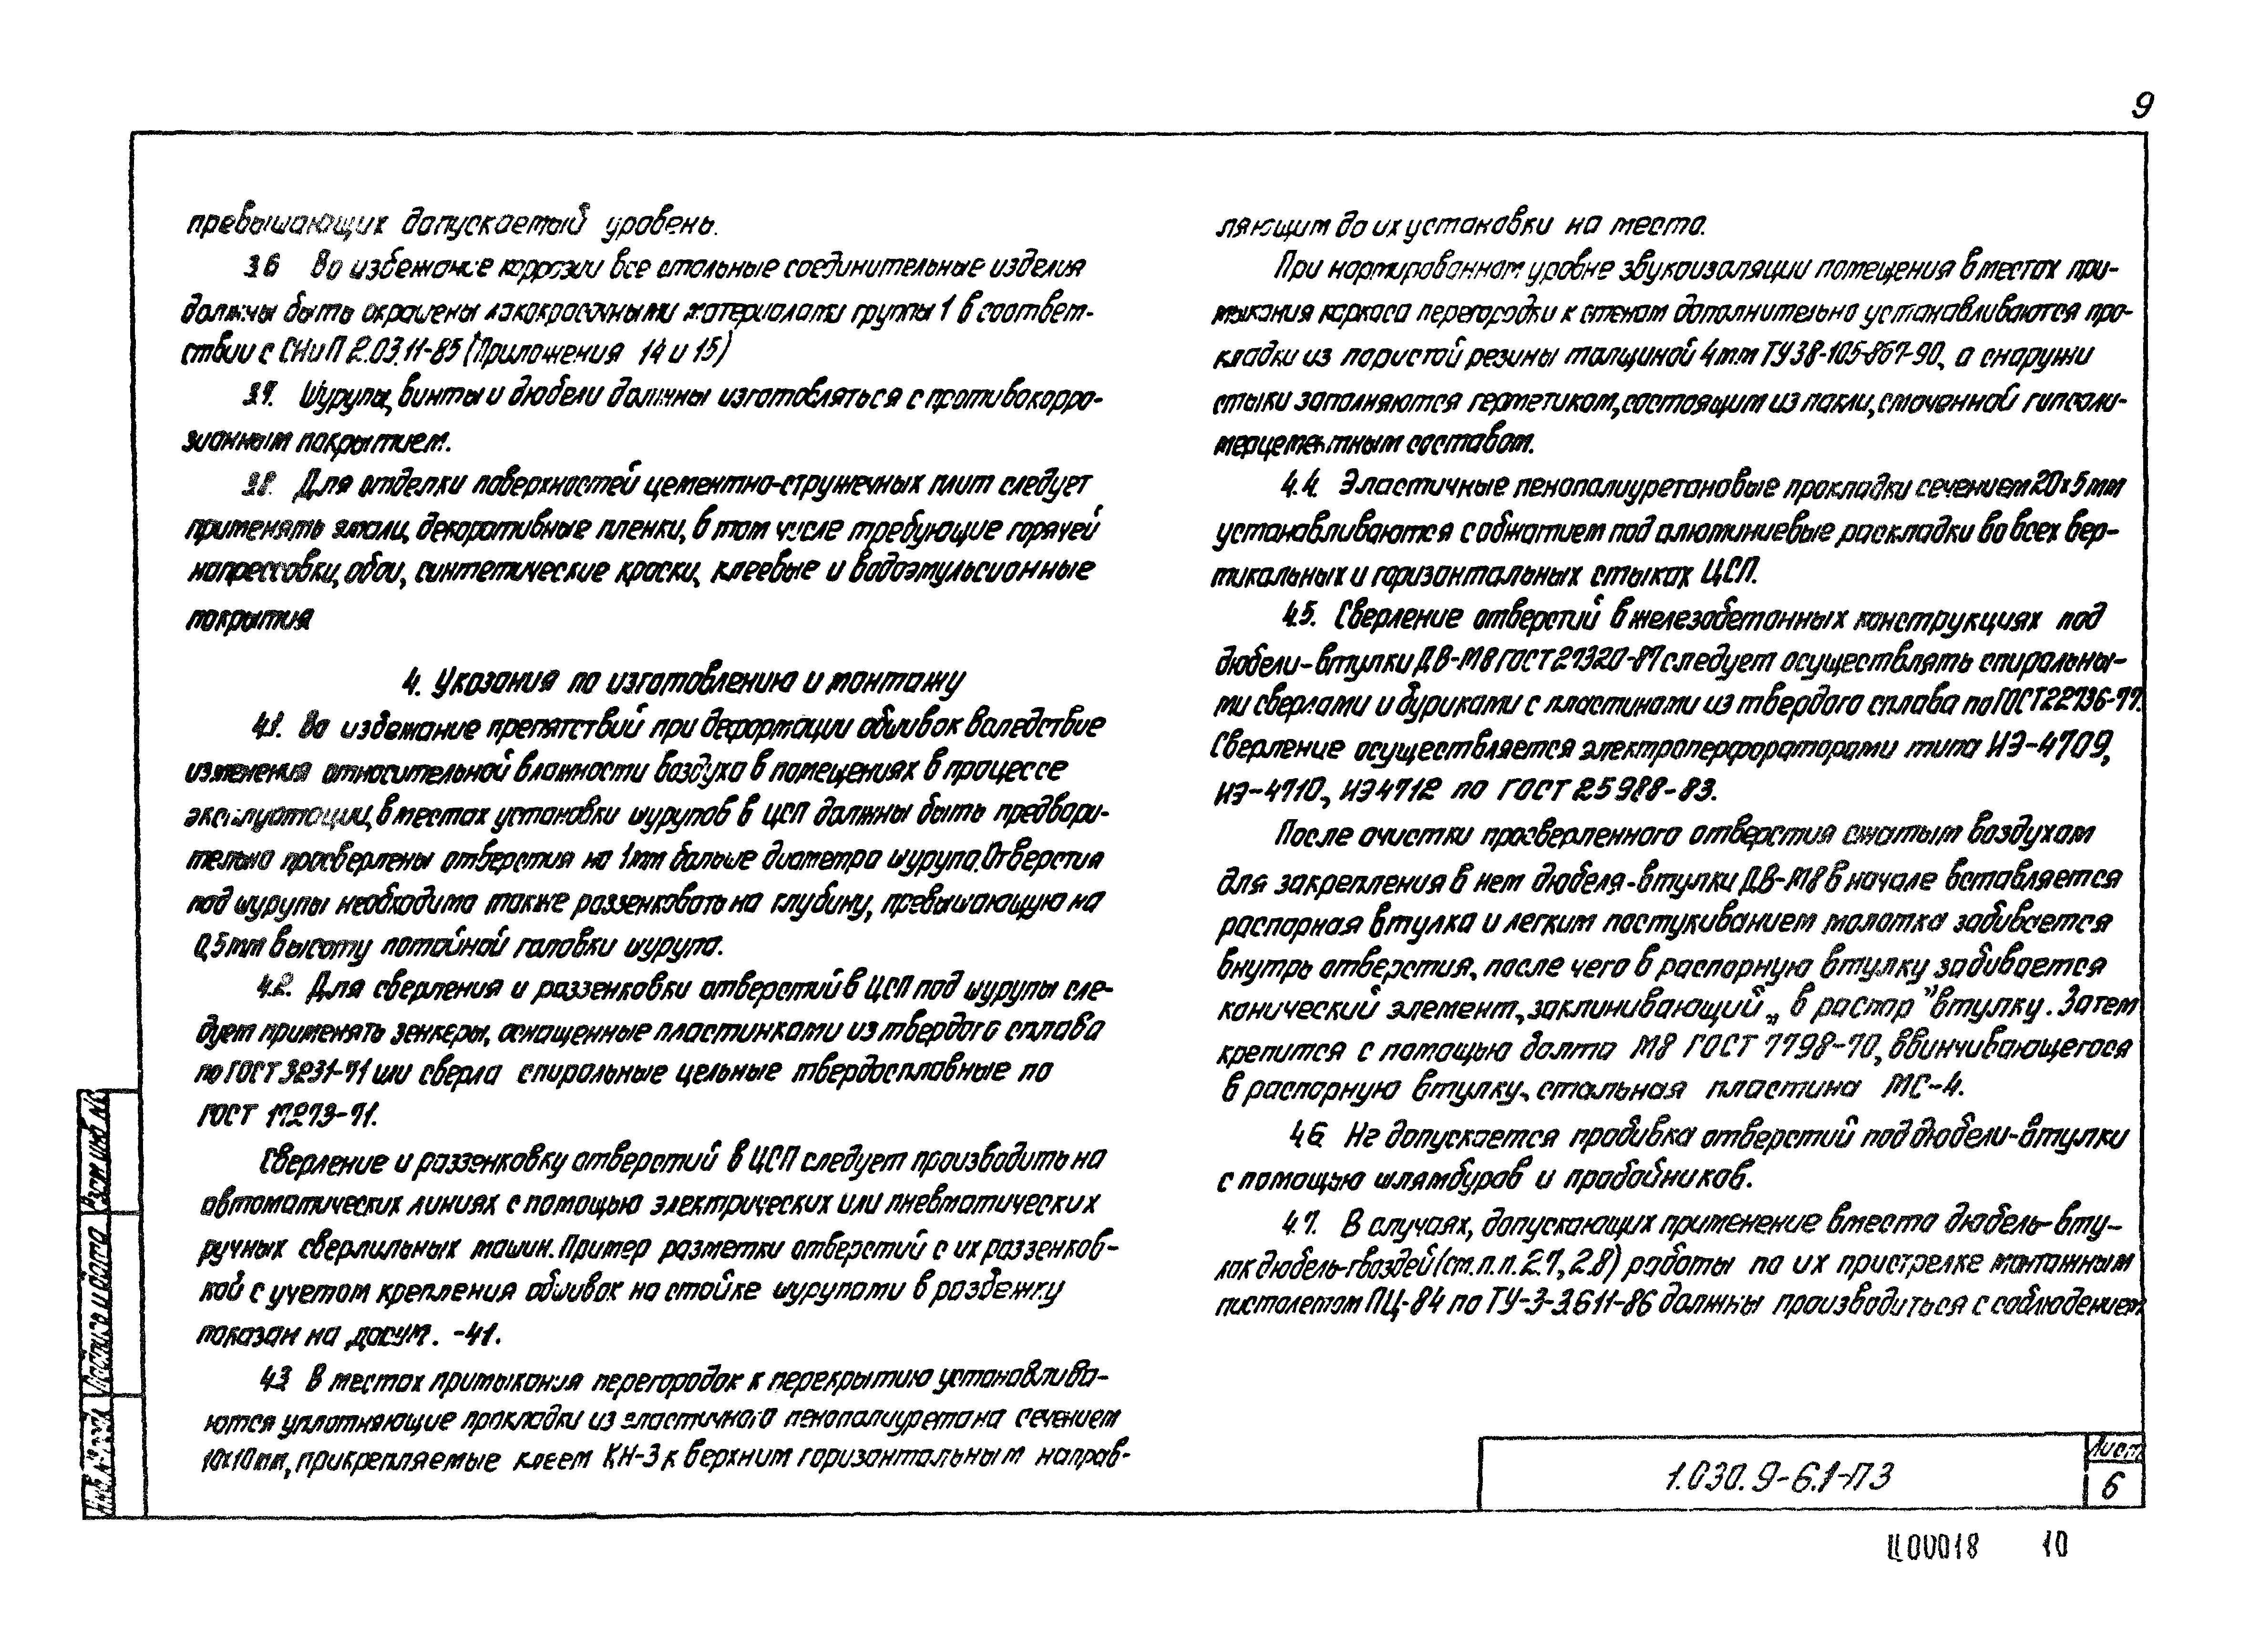 9
превышающих допускаемый уровень.
3.6 Во избежание коррозии все стальные соединительные изделия
должны быть окрашены лакокрасочными материалами группы 1 в соответ-
ствии с СНиП 2.03.11-85 (Приложения 14 и 15)
3.7. Шурупы, винты и дюбели должны изготовляться с противокорро-
зионным покрытием.
3.8. Для отделки поверхностей цементно-стружечных плит следует
применять эмали, декоративные пленки, в том числе требующие горячей
напрессовки, обои, синтетические краски, клеевые и водоэмульсионные
покрытия
4. Указания по изготовлению и монтажу
4.1. Во избежание препятствий при деформации обшивок вследствие
изменения относительной влажности воздуха в помещениях в процессе
эксплуатации, в местах установки шурупов в ЦСП должны быть предвари-
тельно просверлены отверстия на 1мм больше диаметра шурупа. Отверстия
под шурупы необходимо также раззенковать на глубину, превышающую на
0,5мм высоту потайной головки шурупа.
4.2. Для сверления и раззенковки отверстий в ЦСП под шурупы сле-
дует применять зенкеры, оснащенные пластинками из твердого сплава
по ГОСТ 3231-71 или сверла спиральные цельные твердосплавные по
ГОСТ 17273-71.
Сверление и раззенковку отверстий в ЦСП следует производить на
автоматических линиях с помощью электрических или пневматических
ручных сверлильных машин. Пример разметки отверстий с их раззенков-
кой с учетом крепления обшивок на стойке шурупами в разбежку
показан на докум. -41.
4.3 В местах примыкания перегородок к перекрытию устанавлива-
ются уплотняющие прокладки из эластичного пенополиуретана сечением
10х10мм, прикрепляемые клеем КН-3 к верхним горизонтальным направ-
ляющим до их установки на место.
При нормированном уровне звукоизоляции помещения в местах при-
мыкания каркаса перегородки к стенам дополнительно устанавливаются про-
кладки из пористой резины толщиной 4мм ТУ 38-105-867-90, а снаружи
стыки заполняются герметиком, состоящим из пакли, смоченной гипсоли-
мерцементным составом.
4.4. Эластичные пенополиуретановые прокладки сечением 20х5мм
устанавливаются с обжатием под алюминиевые раскладки во всех вер-
тикальных и горизонтальных стыках ЦСП.
4.5. Сверление отверстий в железобетонных конструкциях под
дюбели-втулки ДВ-М8 ГОСТ 27320-87 следует осуществлять спиральны-
ми сверлами и буриками с пластинами из твердого сплава по ГОСТ 22736-77.
Сверление осуществляется электроперфораторами типа ИЭ-4709,
ИЭ-4710, ИЭ4712 по ГОСТ 25988-83.
После очистки просверленного отверстия сжатым воздухом
для закрепления в нем дюбеля-втулки ДВ-М8 в начале вставляется
распорная втулка и легким постукиванием молотка забивается
внутрь отверстия, после чего в распорную втулку забивается
конический элемент, заклинивающий „в распор" втулку. Затем
крепится с помощью болта М8 ГОСТ 7798-70, ввинчивающегося
в распорную втулку, стальная пластина МС-4.
4.6 Не допускается пробивка отверстий под дюбели-втулки
с помощью шлямбуров и пробойников.
4.7. В случаях, допускающих применение вместо дюбель-вту-
лок дюбель-гвоздей (см. п.п. 2.7, 2.8) работы по их пристрелке монтажным
пистолетом ПЦ-84 по ТУ-3-3.611-86 должны производиться с соблюдением
Взам. инв. №
Подпись и дата
Инв. № подл.
1.030.9-6.1-ПЗ
Лист
6
Ц00018 10